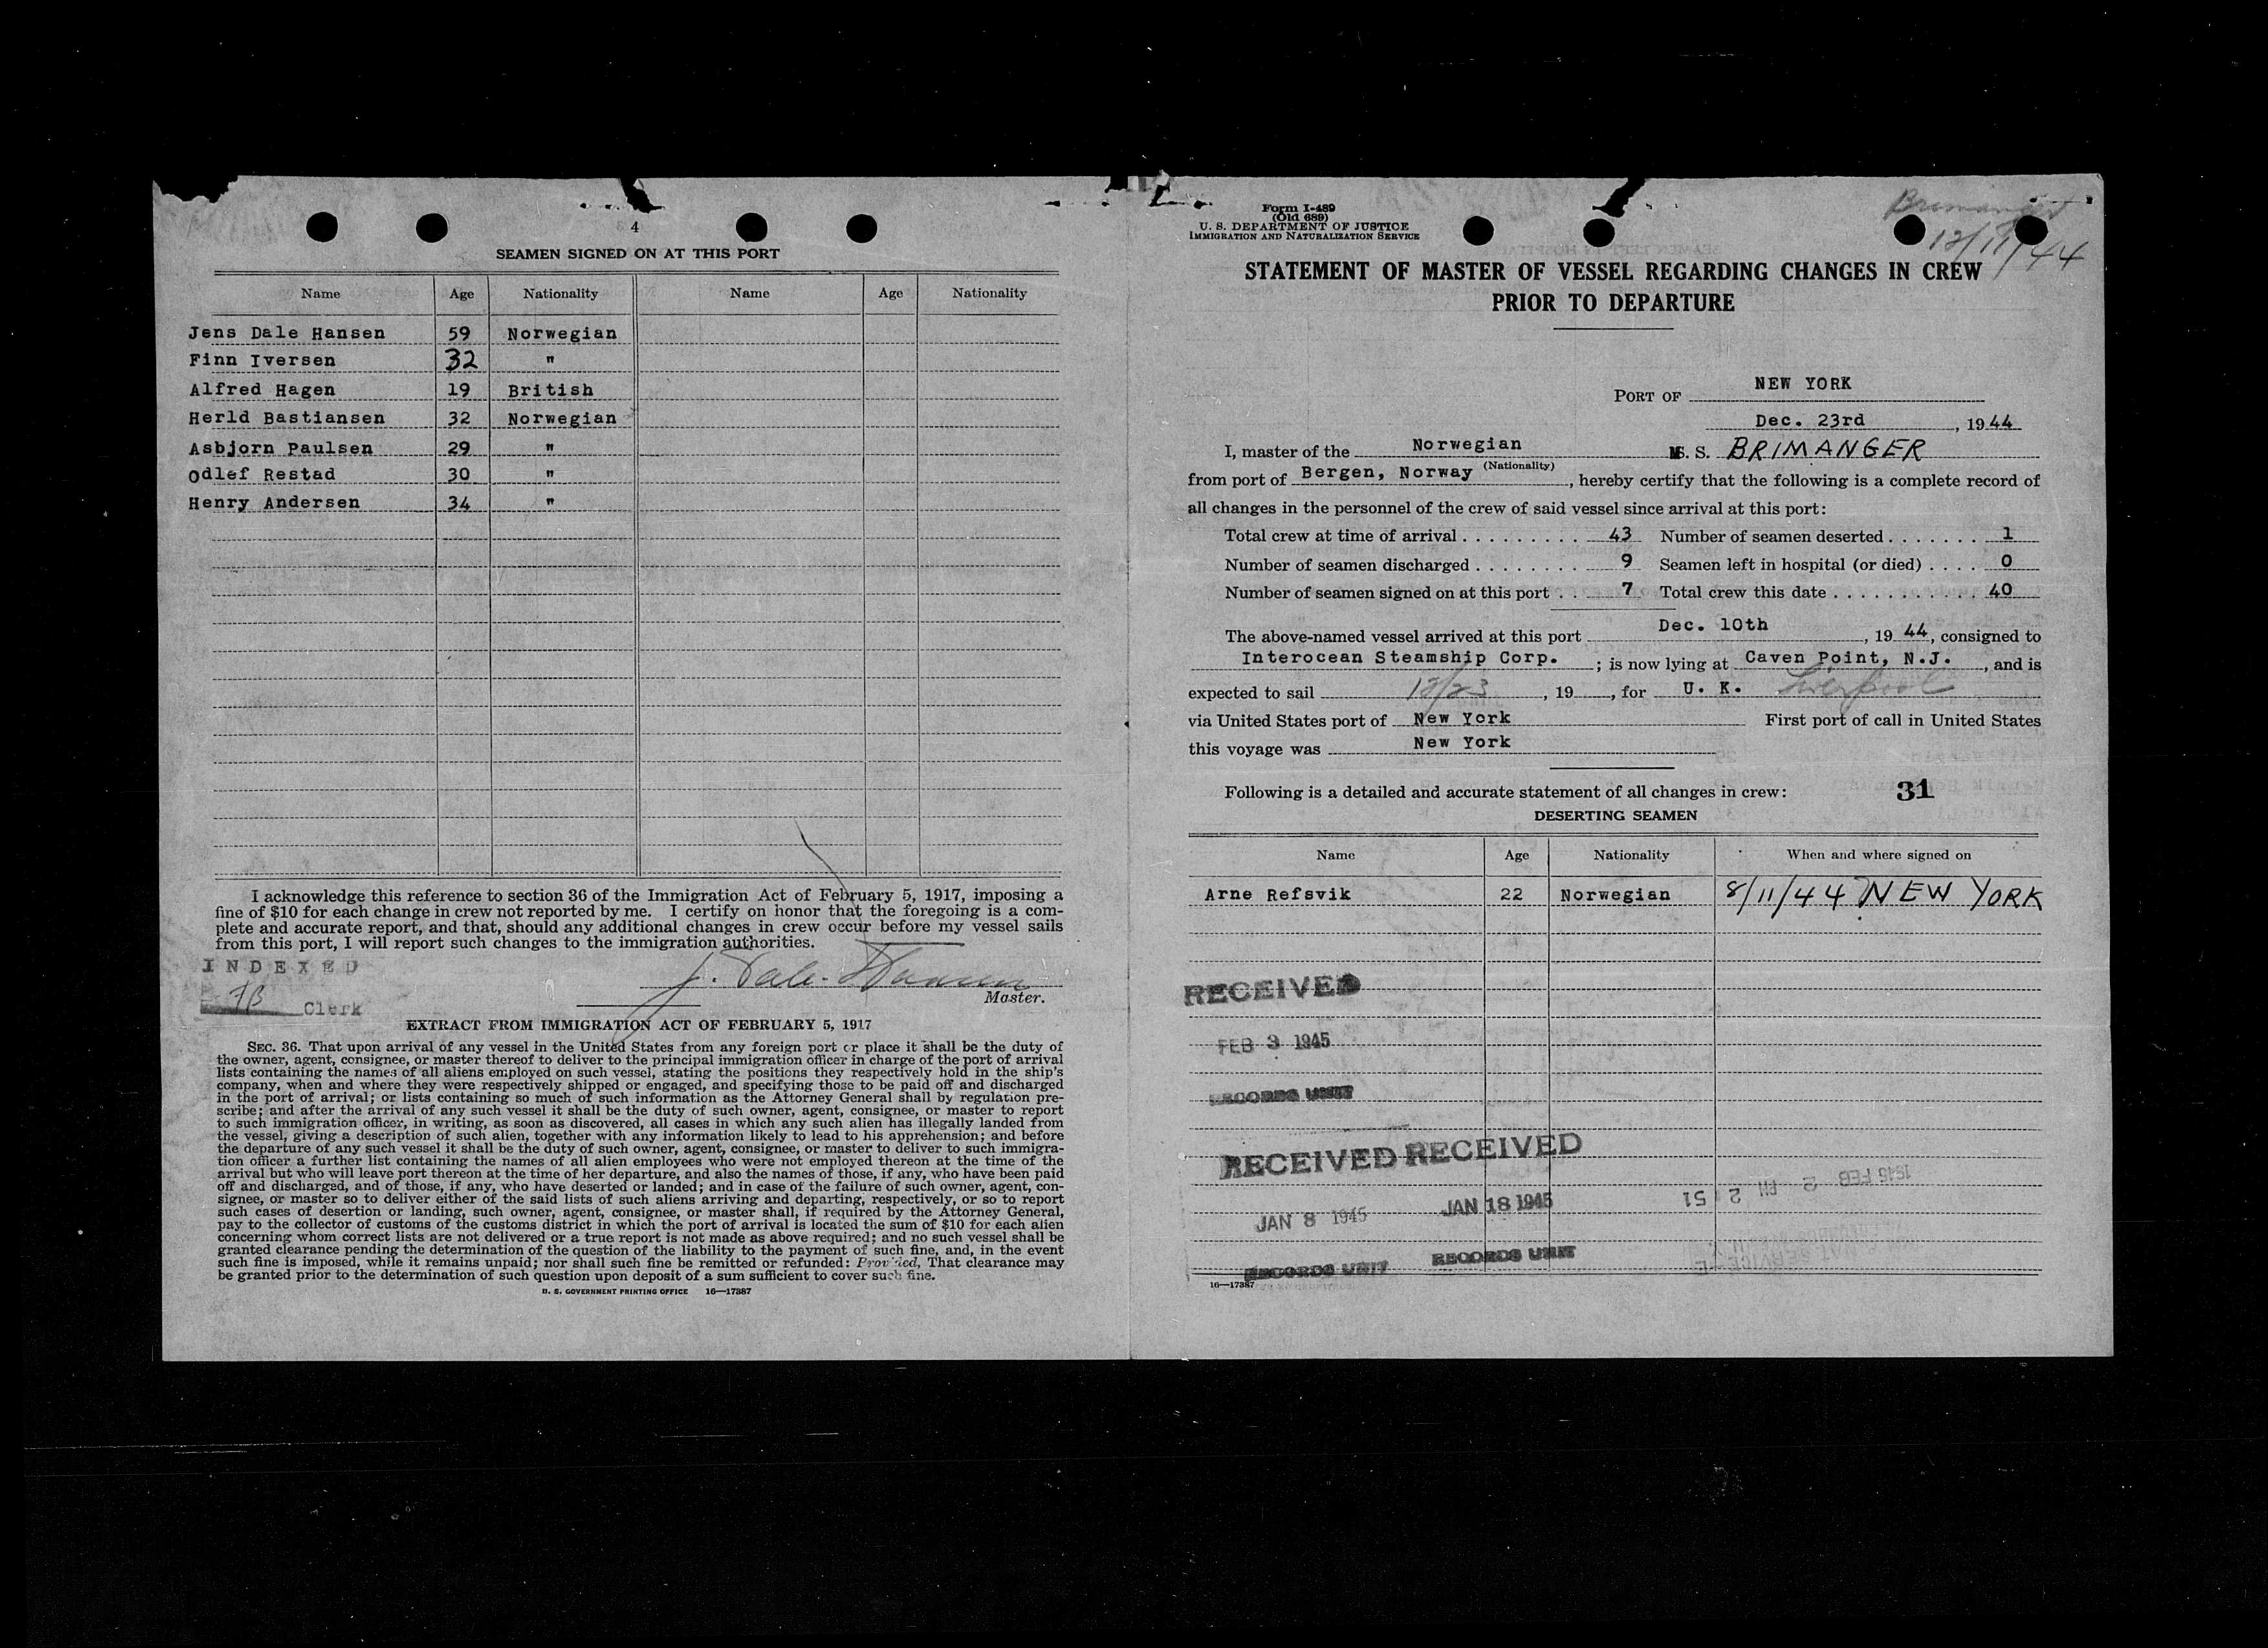 4
SEAMEN SIGNED ON AT THIS PORT
Name Age Nationality Name Age Nationality
Jens Dale Hansen 59 Norwegian
Finn Iversen 32 "
Alfred Hagen 19 British
Herld Bastiansen 32 Norwegian
Asbjorn Paulsen 29 "
Odlef Restad 30 "
Henry Andersen 34 "
I acknowledge this reference to section 36 of the Immigration Act of February 5, 1917, imposing a
fine of $10 for each change in crew not reported by me. I certify on honor that the foregoing is a com-
plete and accurate report, and that, should any additional changes in crew occur before my vessel sails
from this port, I will report such changes to the immigration authorities.
INDEXED
J. Dale-Hansen
Master.
FB Clerk
EXTRACT FROM IMMIGRATION ACT OF FEBRUARY 5, 1917
SEC. 36. That upon arrival of any vessel in the United States from any foreign port or place it shall be the duty of
the owner, agent, consignee, or master thereof to deliver to the principal immigration officer in charge of the port of arrival
lists containing the names of all aliens employed on such vessel, stating the positions they respectively hold in the ship's
company, when and where they were respectively shipped or engaged, and specifying those to be paid off and discharged
in the port of arrival; or lists containing so much of such information as the Attorney General shall by regulation pre-
scribe; and after the arrival of any such vessel it shall be the duty of such owner, agent, consignee, or master to report
to such immigration officer, in writing, as soon as discovered, all cases in which any such alien has illegally landed from
the vessel, giving a description of such alien, together with any information likely to lead to his apprehension; and before
the departure of any such vessel it shall be the duty of such owner, agent, consignee, or master to deliver to such immigra-
tion officer a further list containing the names of all alien employees who were not employed thereon at the time of the
arrival but who will leave port thereon at the time of her departure, and also the names of those, if any, who have been paid
off and discharged, and of those, if any, who have deserted or landed; and in case of the failure of such owner, agent, con-
signee, or master so to deliver either of the said lists of such aliens arriving and departing, respectively, or so to report
such cases of desertion or landing, such owner, agent, consignee, or master shall, if required by the Attorney General,
pay to the collector of customs of the customs district in which the port of arrival is located the sum of $10 for each alien
concerning whom correct lists are not delivered or a true report is not made as above required; and no such vessel shall be
granted clearance pending the determination of the question of the liability to the payment of such fine, and, in the event
such fine is imposed, while it remains unpaid; nor shall such fine be remitted or refunded: Provided, That clearance may
be granted prior to the determination of such question upon deposit of a sum sufficient to cover such fine.
U. S. GOVERNMENT PRINTING OFFICE 16—17387
Form I-489
(Old 689)
U. S. DEPARTMENT OF JUSTICE
IMMIGRATION AND NATURALIZATION SERVICE
Brimanger
12/11/44
STATEMENT OF MASTER OF VESSEL REGARDING CHANGES IN CREW
PRIOR TO DEPARTURE
PORT OF NEW YORK
Dec. 23rd, 1944
I, master of the Norwegian M. S. BRIMANGER
(Nationality)
from port of Bergen, Norway, hereby certify that the following is a complete record of
all changes in the personnel of the crew of said vessel since arrival at this port:
Total crew at time of arrival . . . . . . . . . 43 Number of seamen deserted . . . . . . . 1
Number of seamen discharged . . . . . . . . 9 Seamen left in hospital (or died) . . . . 0
Number of seamen signed on at this port . . 7 Total crew this date . . . . . . . . . . 40
The above-named vessel arrived at this port Dec. 10th, 19 44, consigned to
Interocean Steamship Corp. ; is now lying at Caven Point, N.J. , and is
expected to sail 12/23, 19 , for U. K. Liverpool
via United States port of New York First port of call in United States
this voyage was New York
Following is a detailed and accurate statement of all changes in crew: 31
DESERTING SEAMEN
Name Age Nationality When and where signed on
Arne Refsvik 22 Norwegian 8/11/44 NEW YORK
RECEIVED
FEB 3 1945
RECORDS UNIT
RECEIVED RECEIVED
JAN 8 1945 JAN 18 1945 1945 FEB 2 PM 2 51
RECORDS UNIT RECORDS UNIT
16—17387